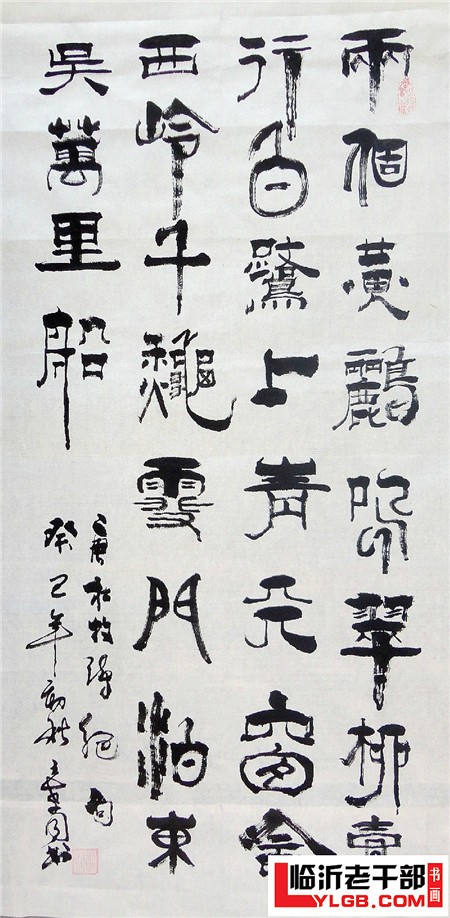 兩個黃鸝鳴翠柳壹
行白鷺上青天窗含
西岭千龝雪門泊東
吳萬里船
唐杜牧詩絕句
癸巳年初秋
临沂老干部
书画
LYLGB.COM